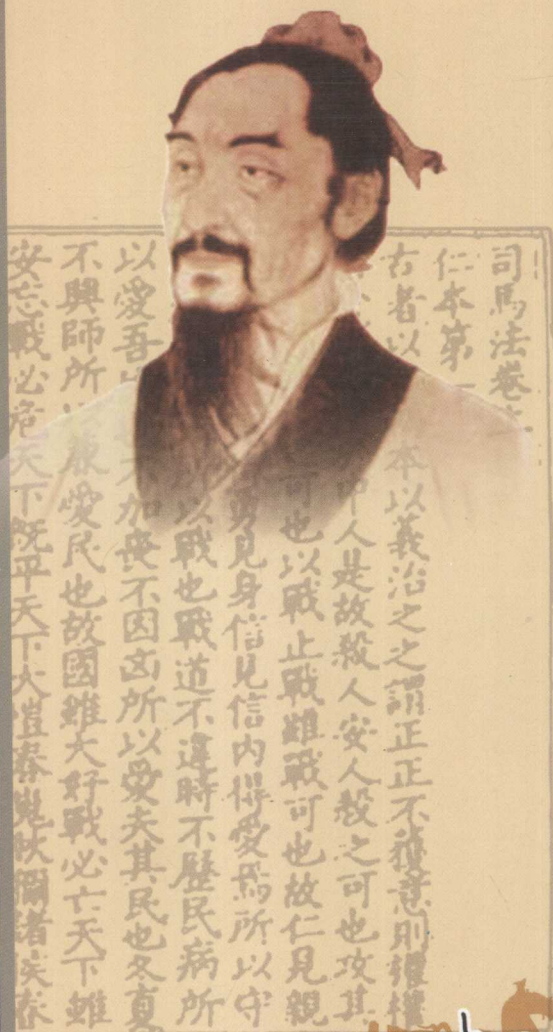 司馬法卷
仁本第一
古者以本以義治之之謂正正不獲意則權權
中人是故殺人安人殺之可也攻其
可也以戰止戰雖戰可也故仁見親
勇見身信見信内得愛焉所以守
以戰也戰道不違時不歷民病所
以愛吾加喪不因凶所以愛夫其民也冬夏
不興師所兼愛民也故國雖大好戰必亡天下雖
安忘戰必危天下既平天下大愷春蒐秋獮諸侯春